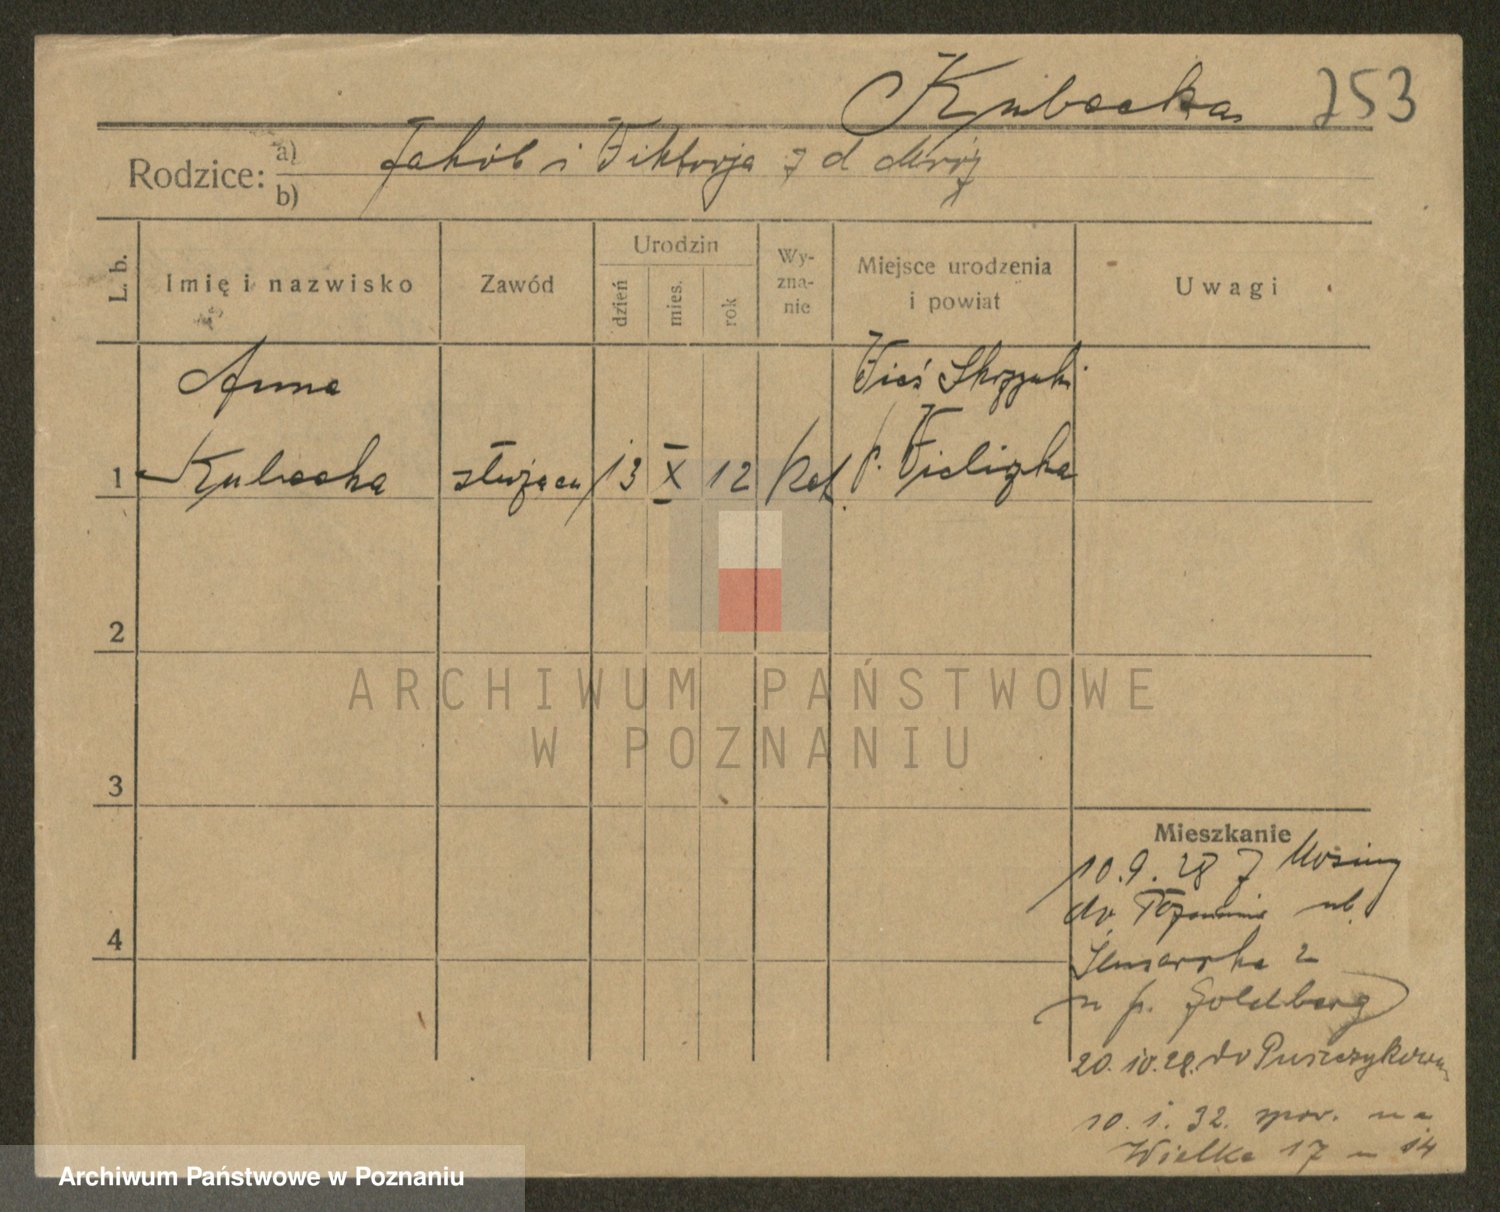 Kubacka 753
Rodzice: a) Jakób i Wiktorja z d Mróz
b)
L. b.
Imię i nazwisko
Zawód
Urodzin
dzień
mies.
rok
Wy-
zna-
nie
Miejsce urodzenia
i powiat
Uwagi
Anna
Wieś
1 Kubacka służąca 13 X 12 kat. p. Wieliczka
2
3
4
Mieszkanie
10.9.28 z Mosiny
do Poznania ul.
2
u p. Goldberg
20.10.28. do Puszczykowa
10.1.32. spow. na
Wielka 17 m 14
ARCHIWUM PAŃSTWOWE
W POZNANIU
Archiwum Państwowe w Poznaniu